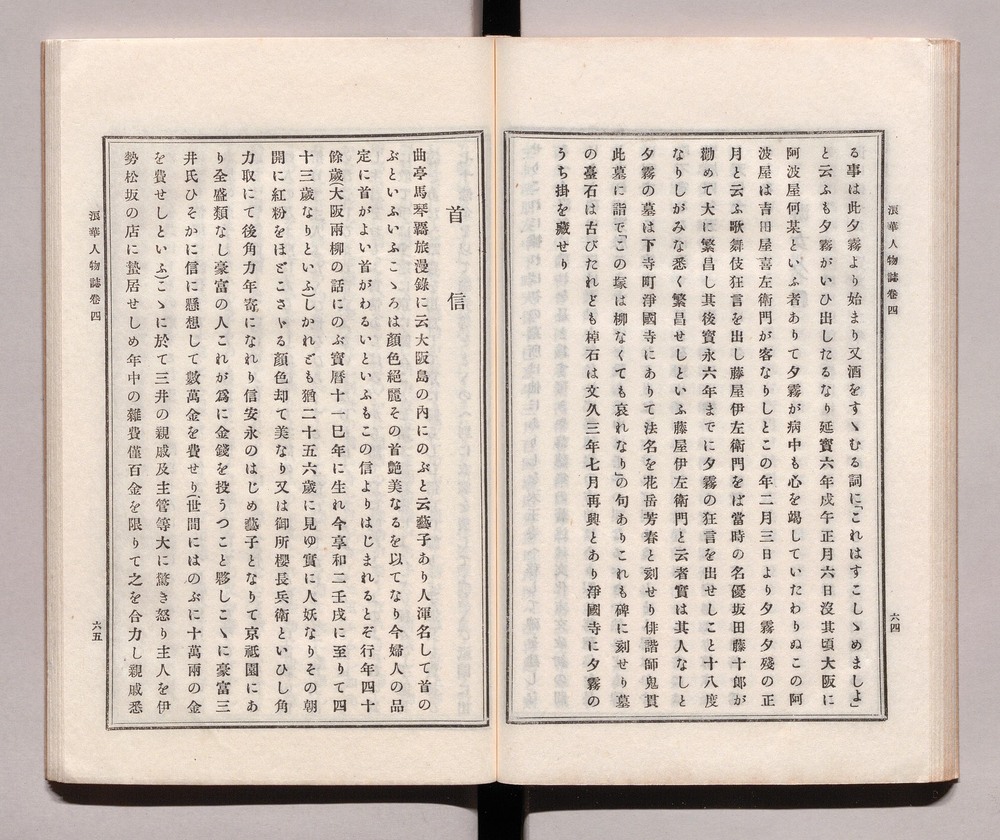 浪華人物誌卷四
六四
る事は此夕霧より始まり又酒をすゝむる詞に「これはすこしゝめましよ」
と云ふも夕霧がいひ出したるなり延寶六年戌午正月六日沒其頃大阪に
阿波屋何某といふ者ありて夕霧が病中も心を竭していたわりぬこの阿
波屋は吉田屋喜左衛門が客なりしとこの年二月三日より夕霧夕殘の正
月と云ふ歌舞伎狂言を出し藤屋伊左衛門をば當時の名優坂田藤十郎が
勸めて大に繁昌し其後寳永六年までに夕霧の狂言を出せしこと十八度
なりしがみな悉く繁昌せしといふ藤屋伊左衛門と云者實は其人なしと
夕霧の墓は下寺町淨國寺にありて法名を花岳芳春と刻せり俳諧師鬼貫
此墓に詣で「この塚は柳なくても哀れなり」の句ありこれも碑に刻せり墓
の臺石は古びたれども棹石は文久三年七月再興とあり淨國寺に夕霧の
うち掛を藏せり
首信
曲亭馬琴羇旅漫錄に云大阪島の內にのぶと云藝子あり人渾名して首の
ぶといふいふこゝろは顏色絕麗その首艶美なるを以てなり今婦人の品
定に首がよい首がわるいといふもこの信よりはじまれるとぞ行年四十
餘歲(大阪兩柳の話にのぶ寳曆十一巳年に生れ今享和二壬戌に至りて四
十三歲なりといふ)しかれども猶二十五六歲に見ゆ實に人妖なりその朝
開に紅粉をほどこさゞる顏色却て美なり又は御所櫻長兵衛といひし角
力取にて後角力年寄になれり信安永のはじめ藝子となりて京祗園にあ
り全盛類なし豪富の人これが爲に金錢を投うつこと夥しこゝに豪富三
井氏ひそかに信に懸想して數萬金を費せり(世間にはのぶに十萬兩の金
を費せしといふ)こゝに於て三井の親戚及主管等大に驚き怒り主人を伊
勢松坂の店に蟄居せしめ年中の雜費僅百金を限りて之を合力し親戚悉
浪華人物誌卷四
六五